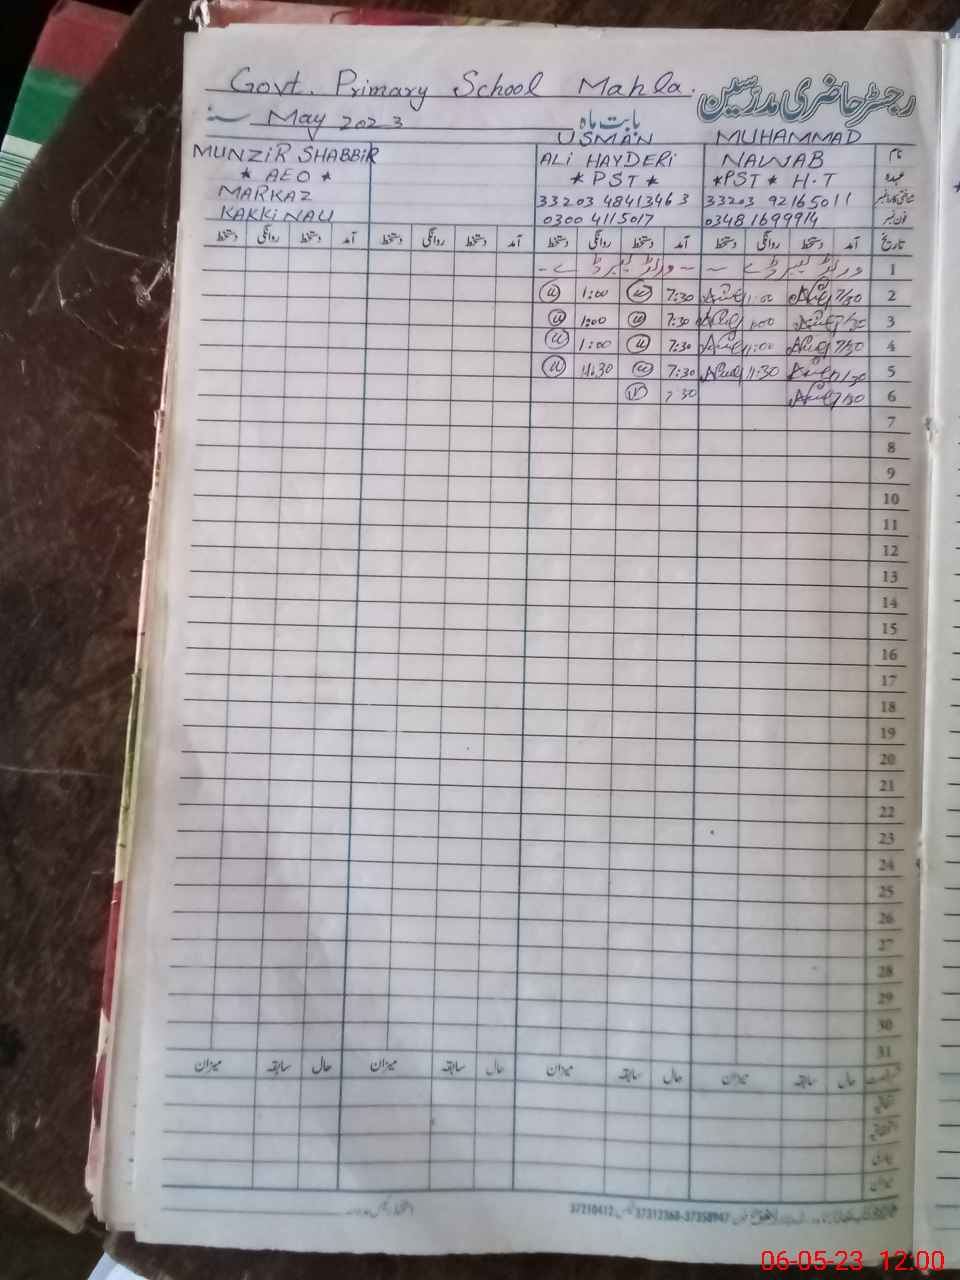 Govt. Primary School Mahla.
رجسٹر حاضری مدرسین
بابت ماہ May 2023 سنہ
نام MUHAMMAD NAWAB USMAN ALI HAYDERI MUNZIR SHABBIR
عہدہ *PST* H.T * PST * * AEO *
33203 92165011 33203 48413463 MARKAZ
فون نمبر 03481699914 0300 4115017 KAKKINAU
تاریخ آمد دستخط روانگی دستخط آمد دستخط روانگی دستخط آمد دستخط روانگی دستخط آمد دستخط روانگی دستخط
1 ورلڈ لیبر ڈے - - ورلڈ لیبر ڈے -
2 7/30 1:00 7:30 1:00
3 7/30 1:00 7:30 1:00
4 7/30 1:00 7:30 1:00
5 7/30 11:30 7:30 11:30
6 7/30 7:30
7
8
9
10
11
12
13
14
15
16
17
18
19
20
21
22
23
24
25
26
27
28
29
30
31
حال سابقہ میزان حال سابقہ میزان حال سابقہ میزان حال سابقہ میزان
میزان
37358947-37312368 37210412
06-05-23 12:00